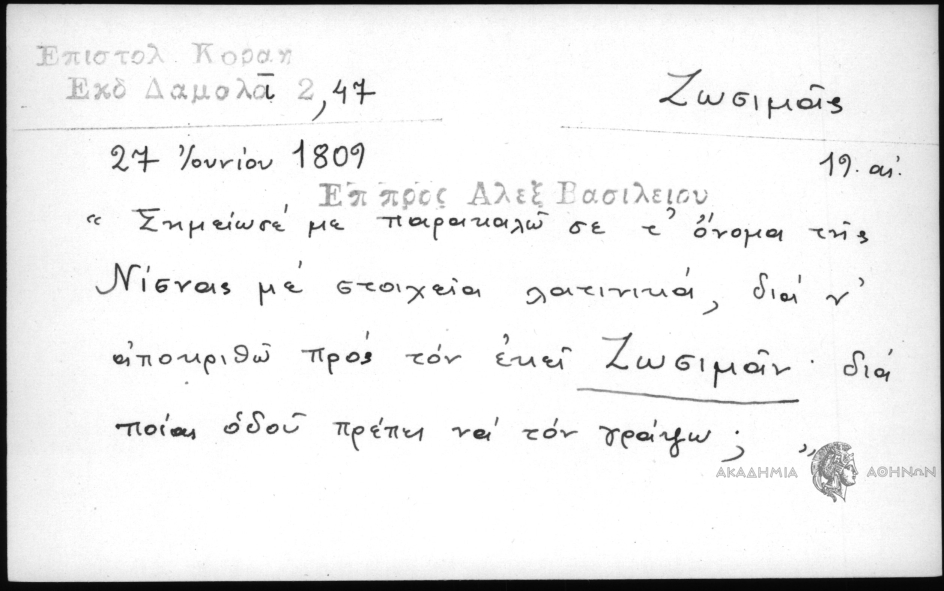 Επιστολ. Κοραη
Εκδ Δαμαλᾶ 2, 47
Ζωσιμᾶς
27 Ἰουνίου 1809
19. αἰ.
Επ προς Αλεξ Βασιλειου
“ Σημείωσέ με παρακαλῶ σε τ' ὄνομα τῆς
Νίσνας μέ στοιχεῖα λατινικά, διά ν'
ἀποκριθῶ πρός τόν ἐκεῖ Ζωσιμᾶν · διά
ποίας ὁδοῦ πρέπει νά τόν γράψω ; ”
ΑΚΑΔΗΜΙΑ ΑΘΗΝΩΝ